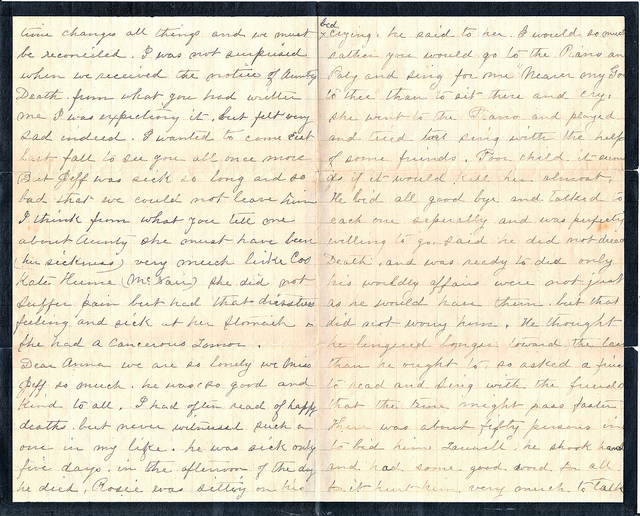 time changes all things and we must
be reconciled. I was not surprised
when we received the notice of Aunty
Death. from what you had written
me I was expecting it. but felt very
sad indeed. I wanted to come East
last fall to see you all once more
But Jeff was sick so long and so
bad that we could not leave him
I think from what you tell me
about Aunty she must have been
(her sickness) very much like Cos
Kate Hume (McNair) she did not
suffer pain but had that distress
feeling and sick at her stomach
She had a Cancerous Tumor.
Dear Anna we are so lonely we miss
Jeff so much. he was so good and
kind to all. I had often read of happy
deaths. but never witnessed such a
one in my life. he was sick only
five days. in the afternoon of the day
he died, Rosie was sitting on his
bed
crying. he said to her. I would so much
rather you would go to the Piano an
Play and sing for me "Nearer my Go
to thee" than to sit there and cry.
She went to the Piano and played
and tried to sing with the help
of some friends. Poor child it seem
as if it would kill her almost.
He bid all good bye and talked to
each one seperatly and was perfectly
willing to go. said he did not dread
Death. and was ready to did only
his worldly affairs were not just
as he would have them. but that
did not worry him. He thought
he lingered longer toward the last
than he ought to. so asked a frie
to read and sing with the friends
that the time might pass faster
There was about fifty persons in
to bid him "Farwell" he shook hands
and had some good word for all
it hurt him very much to talk